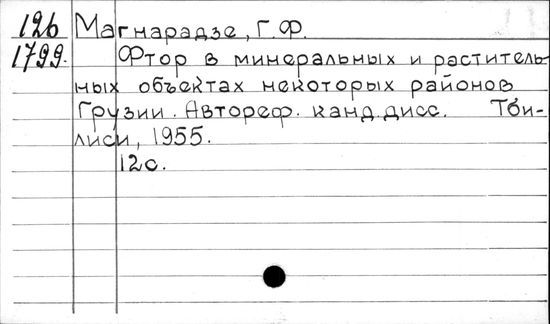 126 Магнарадзе, Г.Ф.
1799. Фтор в минеральных и раститель-
ных объектах некоторых районов
Грузии. Автореф. канд. дисс. Тби-
лиси, 1955.
12с.